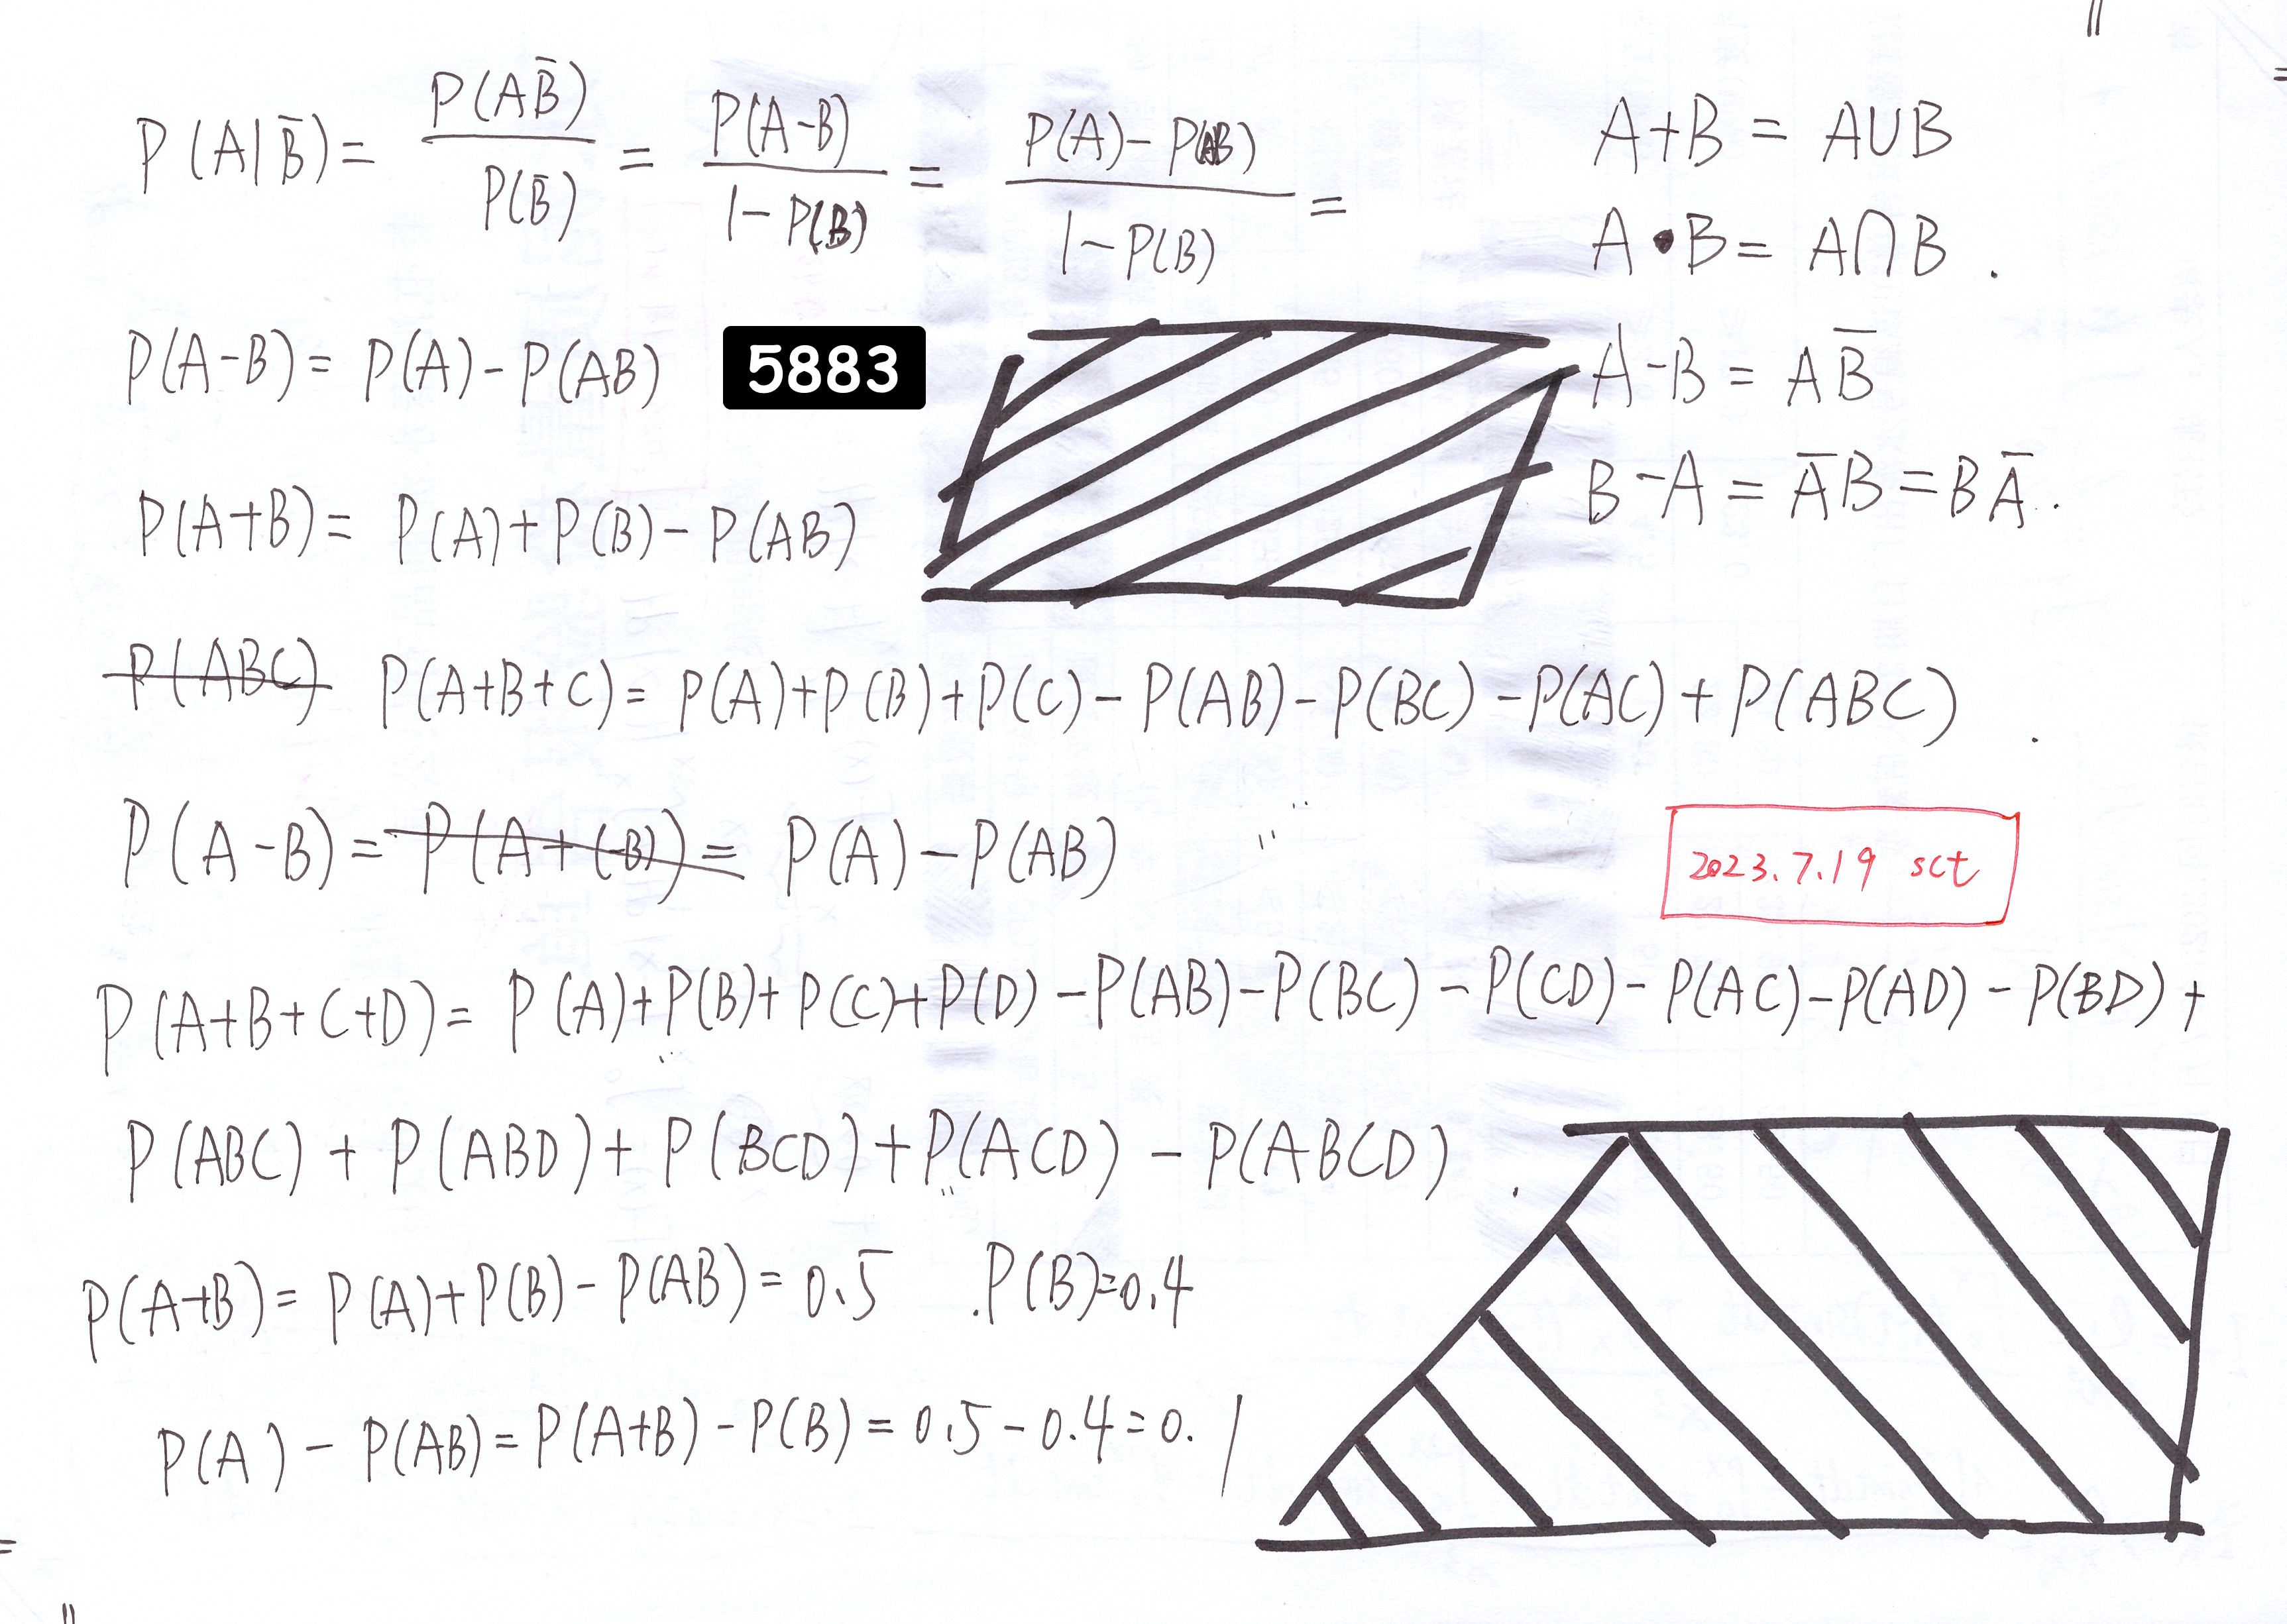 P(A|B̄) = P(AB̄)/P(B̄) = P(A-B)/1-P(B) = P(A)-P(AB)/1-P(B) =
A+B = A∪B
A•B = A∩B .
P(A-B) = P(A)-P(AB)
5883
A-B = AB̄
B-A = ĀB = BĀ.
P(A+B) = P(A)+P(B)-P(AB)
P(ABC) P(A+B+C) = P(A)+P(B)+P(C)-P(AB)-P(BC)-P(AC)+P(ABC) .
P(A-B) = P(A+(-B)) = P(A)-P(AB)
2023.7.19 sct
P(A+B+C+D) = P(A)+P(B)+P(C)+P(D)-P(AB)-P(BC)-P(CD)-P(AC)-P(AD)-P(BD)+
P(ABC)+P(ABD)+P(BCD)+P(ACD)-P(ABCD) .
P(A+B) = P(A)+P(B)-P(AB) = 0.5 .P(B)=0.4
P(A)-P(AB) = P(A+B)-P(B) = 0.5-0.4=0.1